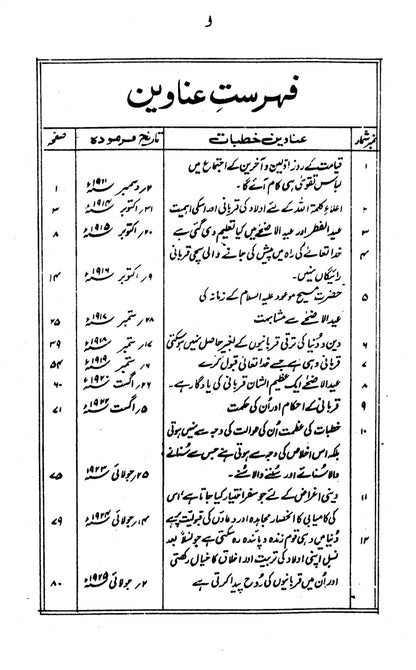 و
فہرستِ عناوین
نمبر شمار عناوین خطبات تاریخ فرمودہ صفحہ
۱ قیامت کے روز اوّلین و آخرین کے اجتماع میں
لباس تقویٰ ہی کام آئے گا۔ ۱
۲ اعلاء کلمۃ اللہ کے لئے اولاد کی قربانی اور اسکی اہمیت ۲۱؍ اکتوبر ۱۹۱۴ء ۳
۳ عید الفطر اور عید الاضحٰے میں کیا تعلیم دی گئی ہے ۲۰؍ اکتوبر ۱۹۱۵ء ۸
۴ خدا تعالےٰ کی راہ میں پیش کی جانے والی سچی قربانی
رائیگاں نہیں۔ ۹؍ اکتوبر ۱۹۱۶ء ۱۴
۵ حضرت مسیح موعود علیہ السلام کے زمانہ کی
عید الاضحٰے سے مشابہت ۲۸؍ ستمبر ۱۹۱۷ء ۲۵
۶ دین و دُنیا کی ترقی قربانیوں کے بغیر حاصل نہیں ہوسکتی ۱۷؍ ستمبر ۱۹۱۸ء ۳۹
۷ قربانی وہی ہے جسے خدا تعالیٰ قبول کرے ۶؍ ستمبر ۱۹۱۹ء ۵۴
۸ عید الاضحٰے ایک عظیم الشان قربانی کی یادگار ہے۔ ۲۶؍ اگست ۱۹۲۰ء ۶۰
۹ قربانی کے احکام اور اُن کی حکمت ۵؍ اگست ۱۹۲۲ء ۷۱
۱۰ خطبات کی عظمت اُن کی طوالت کی وجہ سے نہیں ہوتی
بلکہ اس اخلاص کی وجہ سے ہوتی ہے جس سے سُنانے
والا سُنائے اور سُننے والا سُنے۔ ۲۵؍ جولائی ۱۹۲۳ء ۷۵
۱۱ دینی اغراض کے لئے جو سفر اختیار کیا جاتا ہے اس
کی کامیابی کا انحصار مجاہدہ اور دعاؤں کی قبولیت پر ہے ۱۴؍ جولائی ۱۹۲۴ء ۷۹
۱۲ دُنیا میں وہی قوم زندہ و پائندہ رہ سکتی ہے جو نسلاً بعد
نسل اپنی اولاد کی تربیت اور اخلاق کا خیال رکھتی
اور اُن میں قربانیوں کی رُوح پیدا کرتی ہے ۲؍ جولائی ۱۹۲۵ء ۸۰